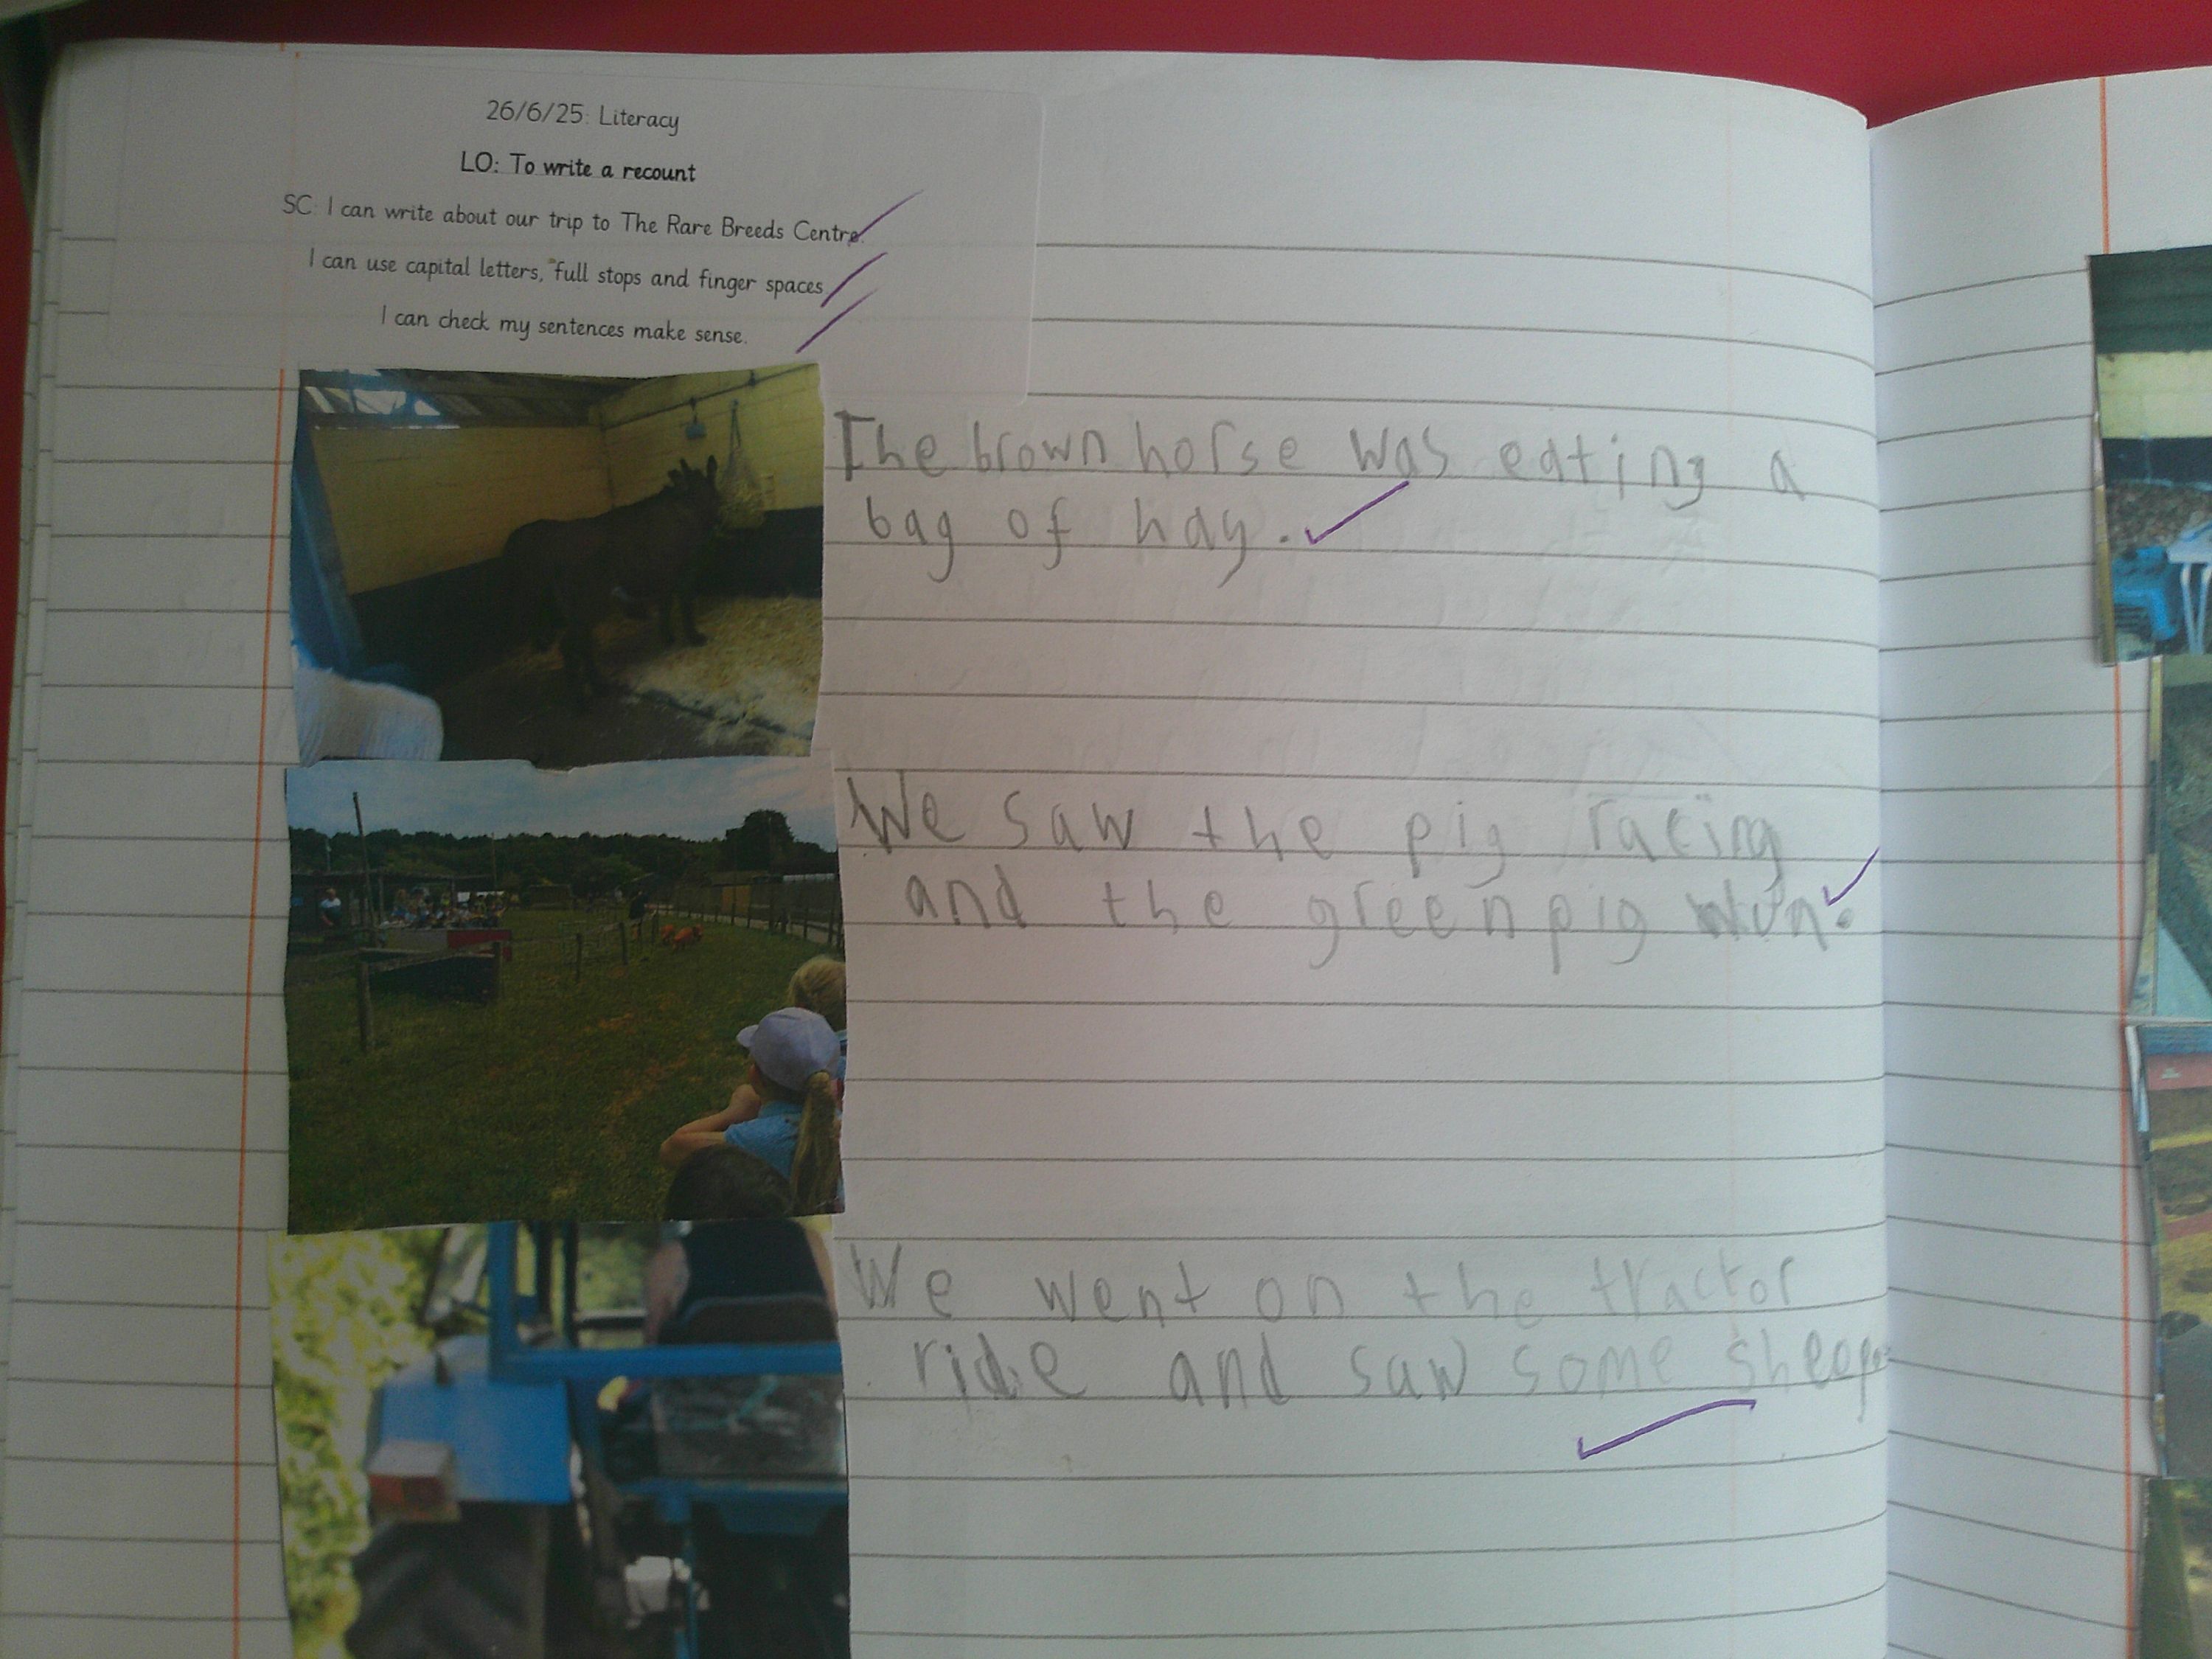 26/6/25: Literacy
LO: To write a recount
SC: I can write about our trip to The Rare Breeds Centre.
I can use capital letters, full stops and finger spaces
I can check my sentences make sense.
The brown horse was eating a
bag of hay.
We saw the pig racing
and the green pig wun.
We went on the tractor
ride and saw some sheep.